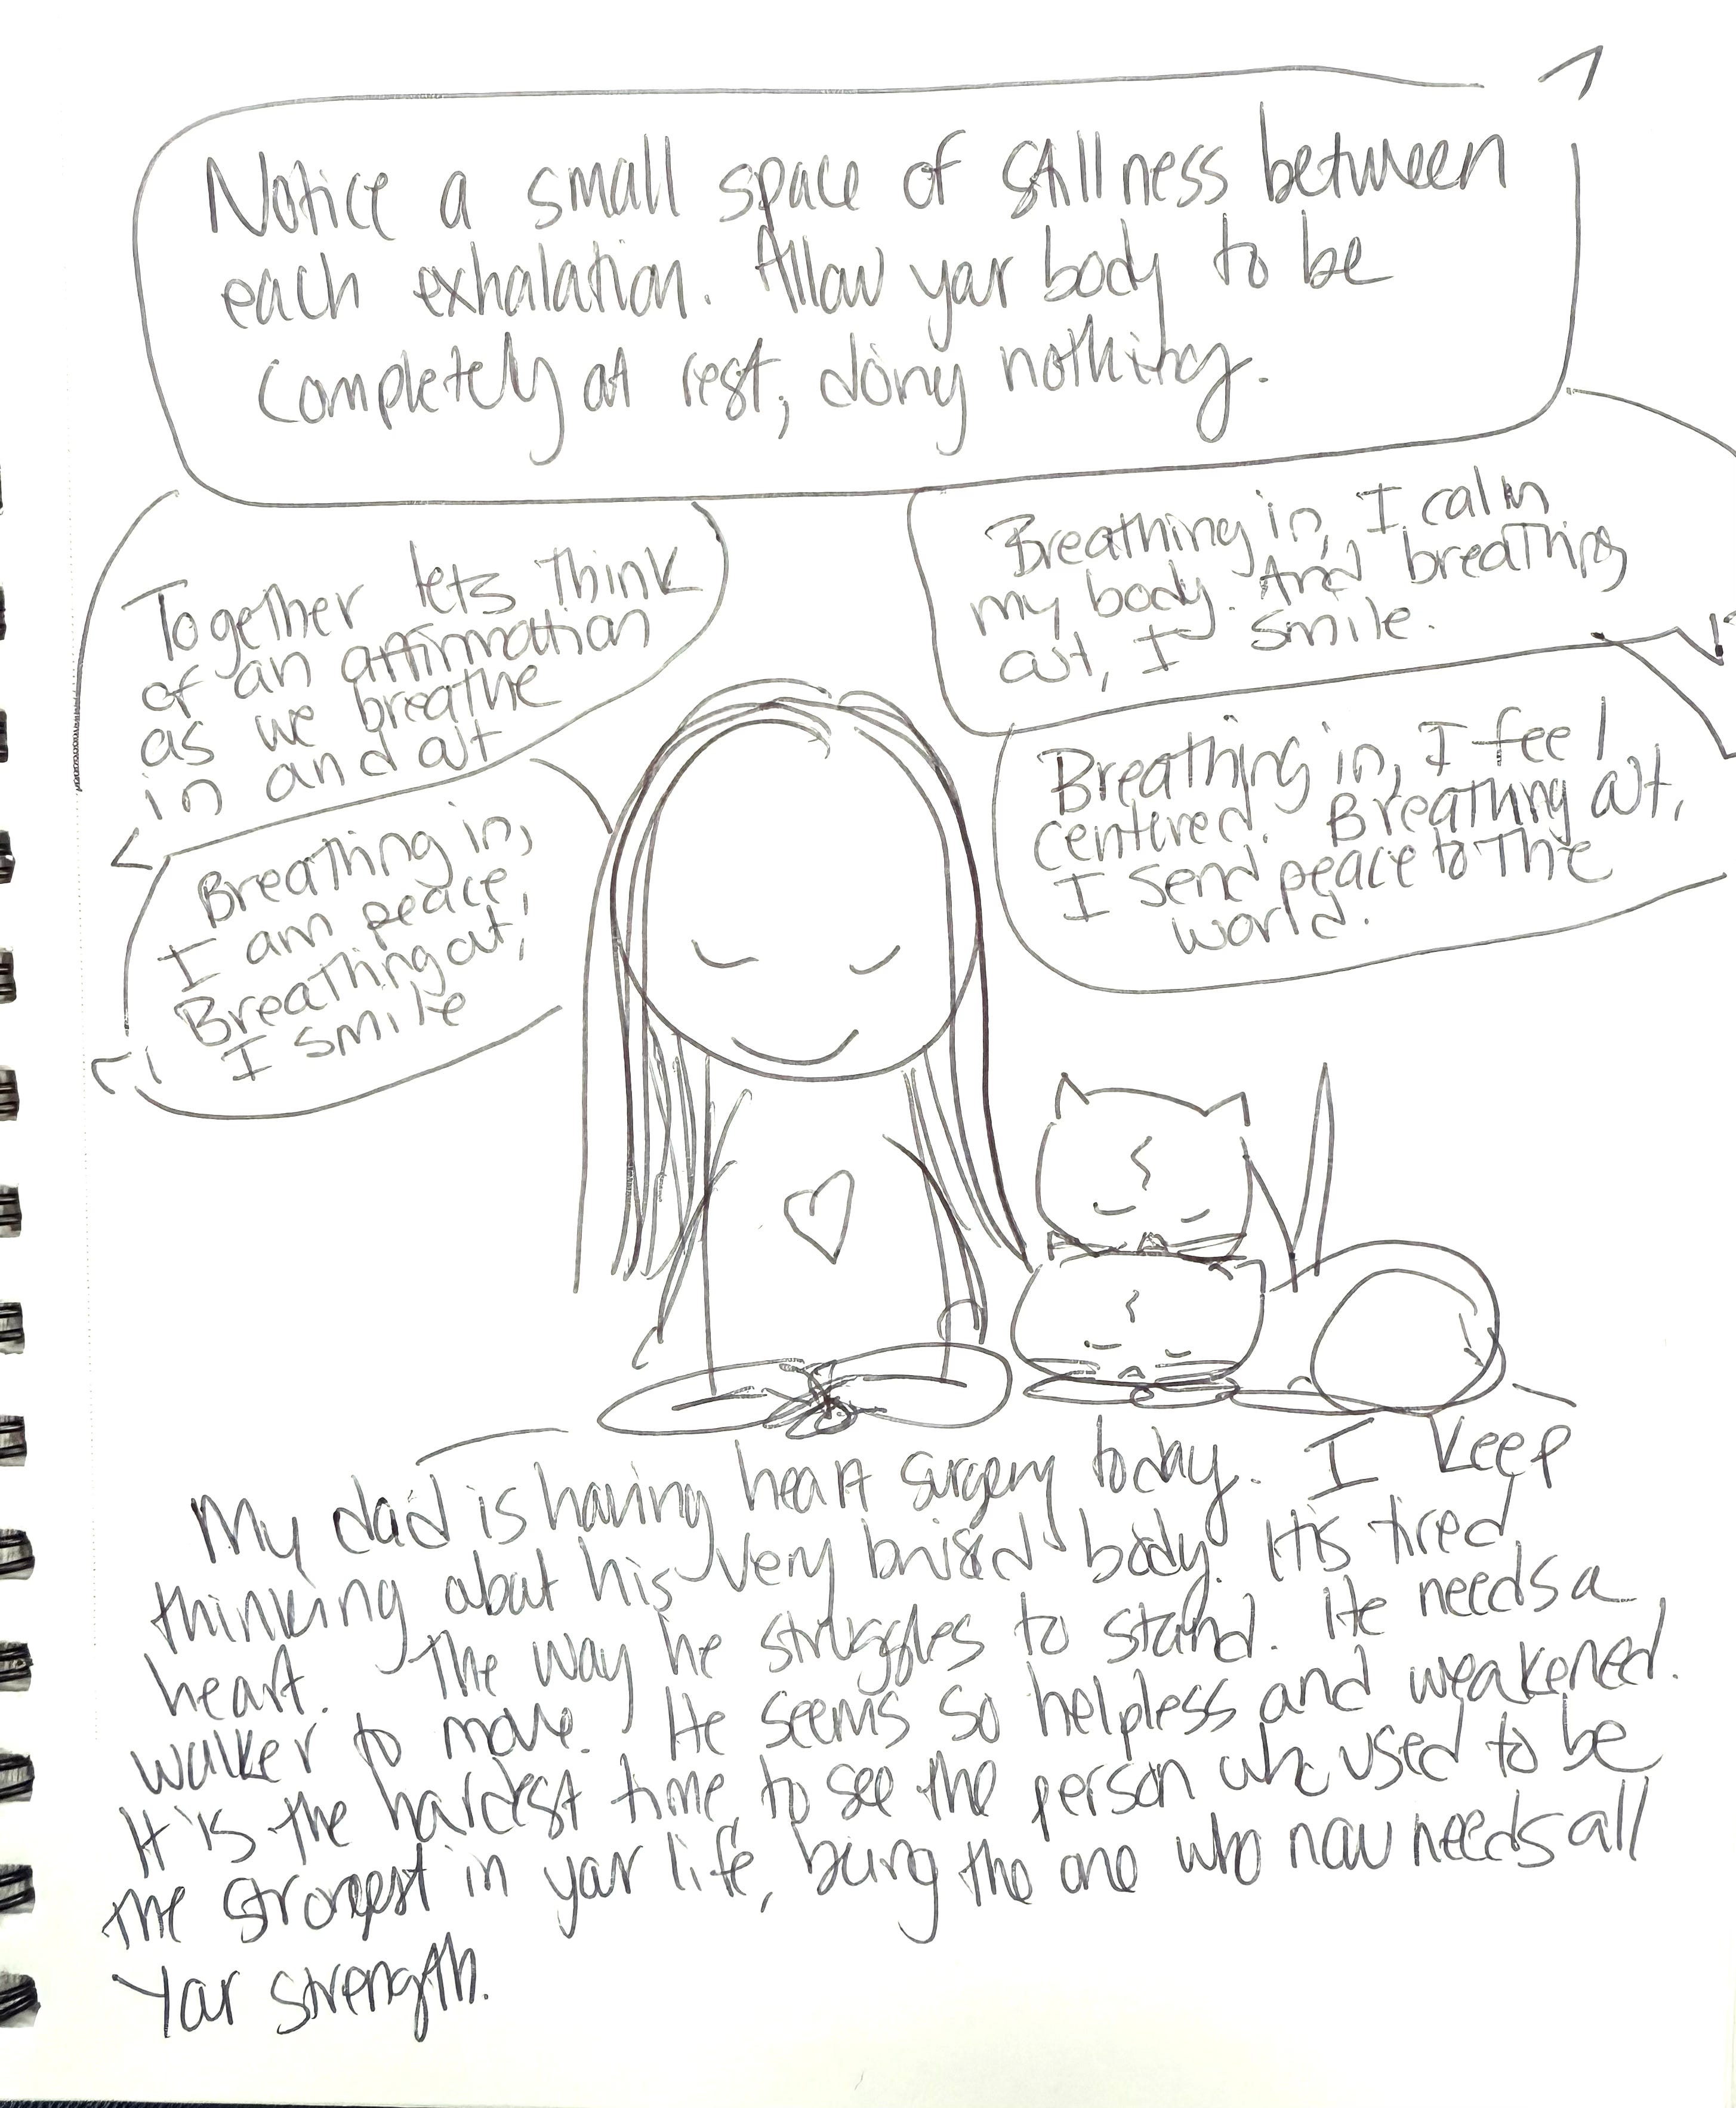 Notice a small space of stillness between
each exhalation. Allow your body to be
completely at rest, doing nothing.
Together lets think
of an affirmation
as we breathe
in and out
Breathing in,
I am peace,
Breathing out,
I smile
Breathing in, I calm
my body. And breathing
out, I smile.
Breathing in, I feel
centered. Breathing out,
I send peace to the
world.
My dad is having heart surgery today. I keep
thinking about his very bruised body. His tired
heart. The way he struggles to stand. He needs a
walker to move. He seems so helpless and weakened.
It is the hardest time to see the person who used to be
the strongest in your life, being the one who now needs all
your strength.